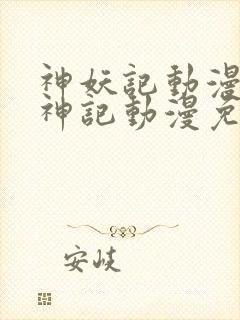 神妖記動漫
神記動漫免
安峽